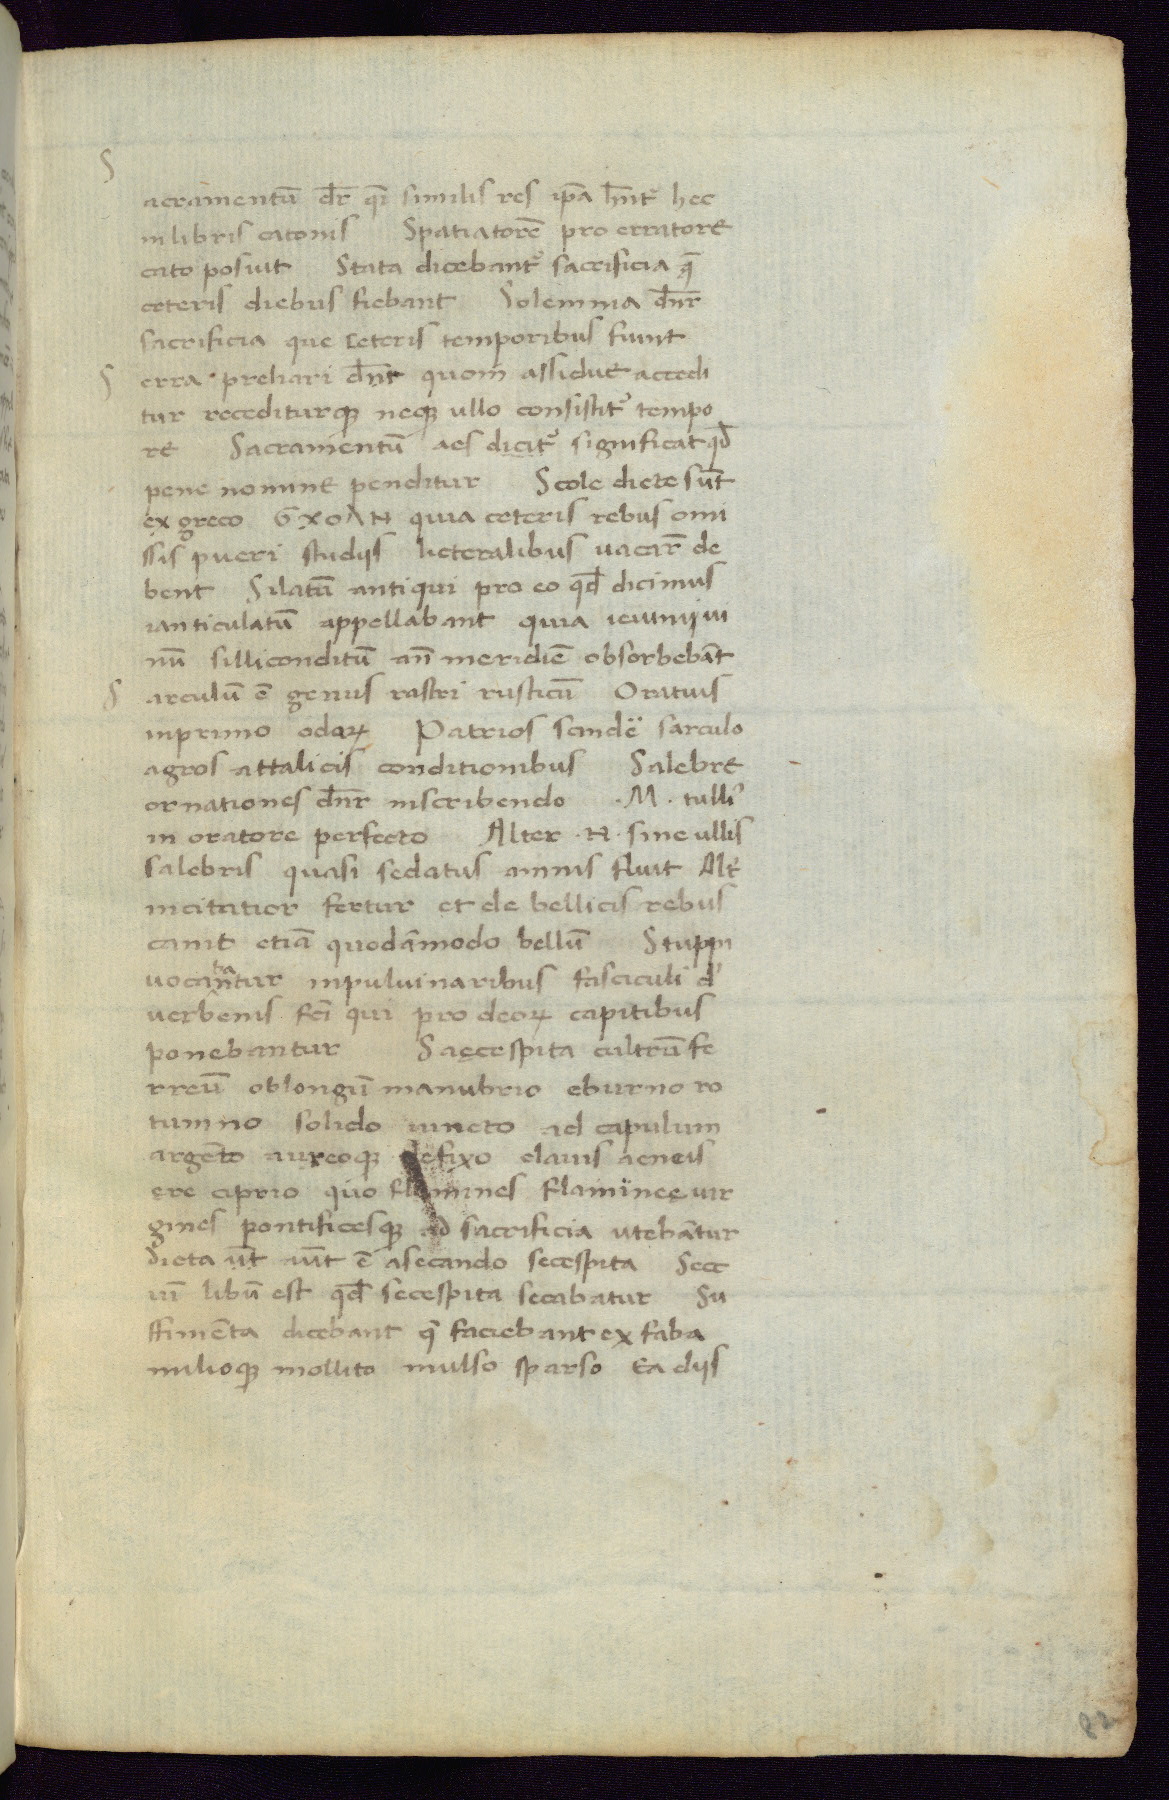 S
acramentū dr̄ qī similis res ip̄a hn̄it᷑ hec
in libris catonis Spatiatorē pro erratore
cato posuit Stata dicebant᷑ sacrificia q̄
ceteris diebus fiebant Solemnia dn̄r
sacrificia que ceteris temporibus fiunt
S erra · preliari dn̄t quom̄ assidue accedi
tur recediturqꝫ neqꝫ ullo consistit᷑ tempo
re Sacramentū aes dicit᷑ significat qđ
pene nomine penditur Scole dicte sūt
ex greco GXOΛN quia ceteris rebus omi
ssis pueri studijs litteralibus uacar̄ de
bent Silatū antiqui pro eo qđ dicimus
ianticulatū appellabant quia ieiunij ui
nū silliconditū an̄ meridiē obsorbebāt
S arculū ē genus rastri rusticū Oratius
in primo odaꝝ Patrios scindē sarculo
agros attalicis conditionibus Salebre
ornationes dn̄r in scribendo · M · tulli᷒
in oratore perfecto Alter · N · sine ullis
salebris quasi sedatus amnis fluit Alt̄
incitatior fertur et de bellicis rebus
canit etiā quodāmodo bellū Stuppi
uocantur in puluinaribus fasciculi d᷒
uerbenis fc̄i qui pro deoꝝ capitibus
ponebantur Saecespita cultrū fe
rreū oblongū manubrio eburno ro
tumno solido iuncto ad capulum
argēto aureoqꝫ defixo clauis aeneis
ere ciprio quo flamines flamineę uir
gines pontificesqꝫ ad sacrificia utebātur
dicta ūt aūt ē a secando secespita Sece
uī libū est qđ secespita secabatur Su
ffimēta dicebant q̄ faciebant ex faba
milioqꝫ mollito mulso sparso Ea dijs
82